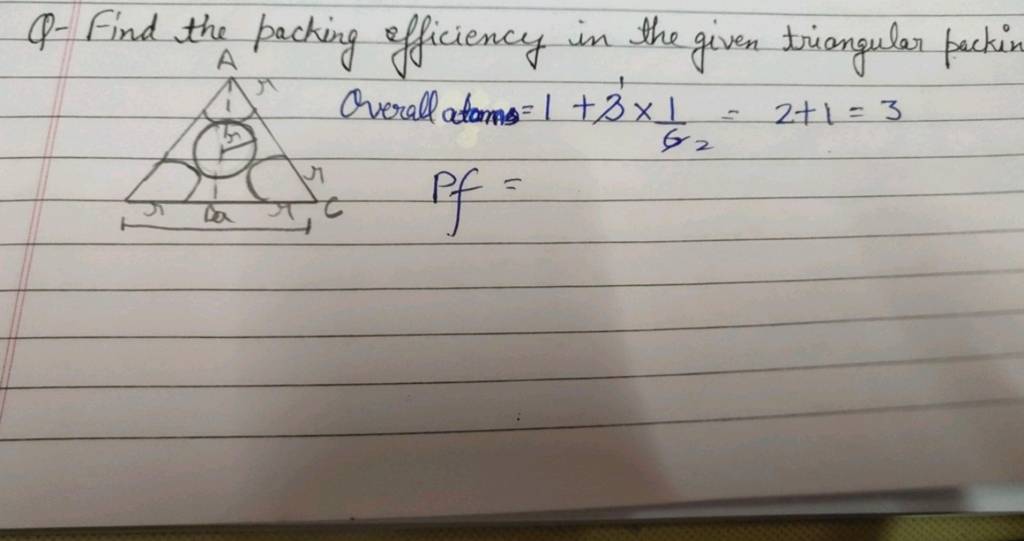 Q- Find the packing efficiency in the given triangular packin
A
r
Overall atoms = 1 + 3 × 1/6 2 = 2+1 = 3
r
Pf =
r r C